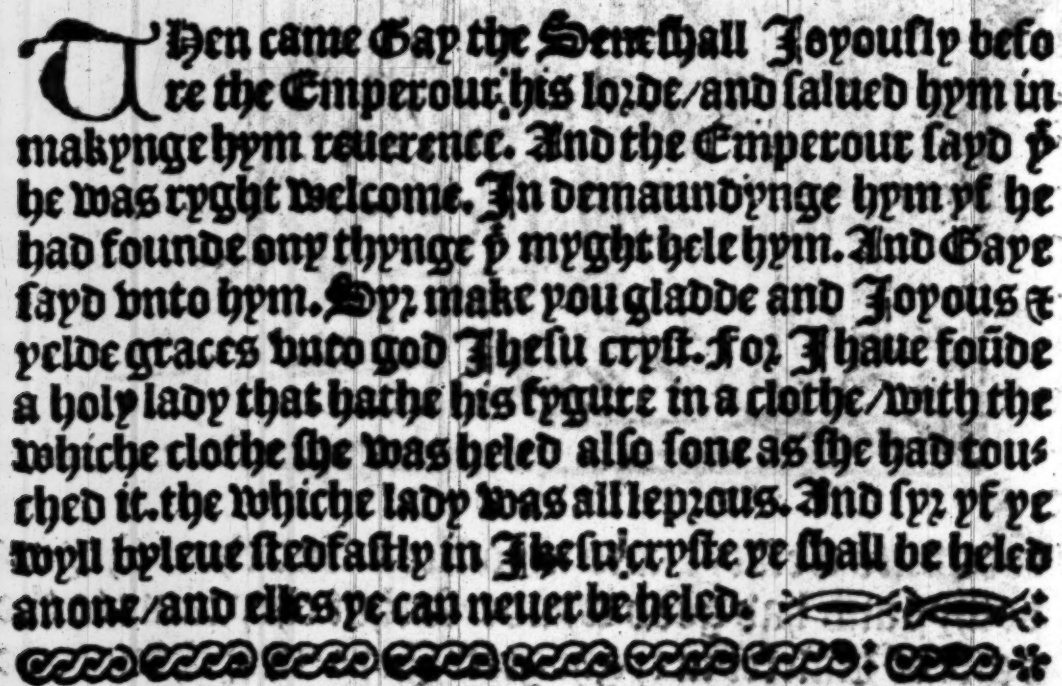 THen came Gay the Seneſhall Joyouſly befo
re the Emperour his lorde/and ſalued hym in
makynge hym reuerence. And the Emperour ſayd yͭ
he was ryght welcome. In demaundynge hym yf he
had founde ony thynge yͭ myght hele hym. And Gaye
ſayd vnto hym. Syꝛ make you gladde and Joyous ⁊
yelde graces vnto god Jheſu cryſt. Foꝛ I haue foūde
a holy lady that hathe his fygure in a clothe/with the
whiche clothe ſhe was heled alſo ſone as ſhe had tou⸗
ched it. the whiche lady was all lepꝛous. And ſyꝛ yf ye
wyll byleue ſtedfaſtly in Jheſu cryſte ye ſhall be heled
anone/and elles ye can neuer be heled.